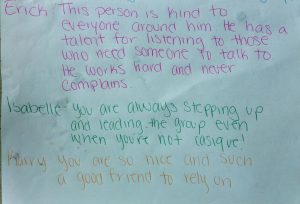 Erick: This person is kind to
everyone around him. He has a
talent for listening to those
who need someone to talk to
He works hard and never
complains.
Isabelle- you are always stepping up
and leading the group even
when you're not casique!
Harry you are so nice and such
a good friend to rely on